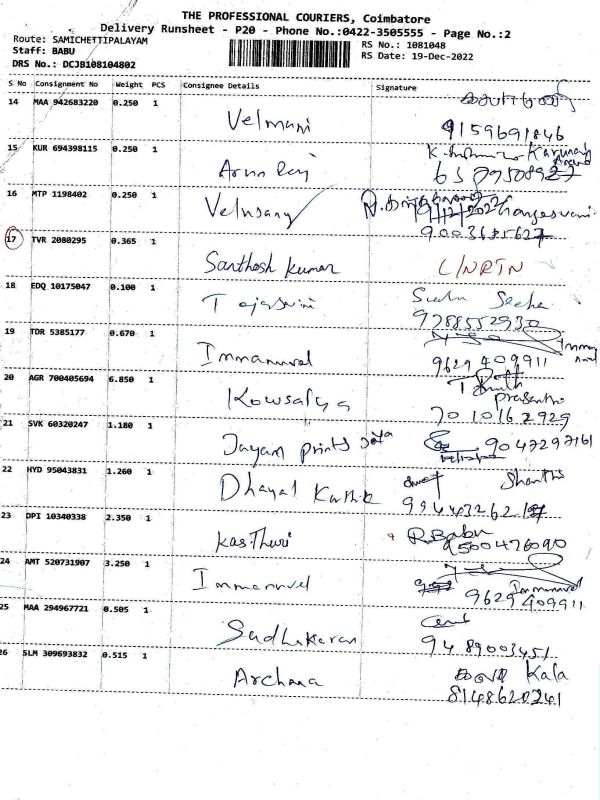 THE PROFESSIONAL COURIERS, Coimbatore
Delivery Runsheet - P20 - Phone No.:0422-3505555 - Page No.:2
Route: SAMICHETTIPALAYAM
RS No.: 1081048
Staff: BABU
RS Date: 19-Dec-2022
DRS No.: DCJB108104802
S No Consignment No Weight PCS Consignee Details Signature
14 MAA 942683220 0.250 1
Velmani 9159691846
15 KUR 694398115 0.250 1
Arun Raj
16 MTP 1198402 0.250 1
Velusamy
17 TVR 2080295 0.365 1
Santhosh Kumar
18 EDQ 10175047 0.100 1
Tejasvini
9788552930
19 TDR 5385177 0.670 1
Immanuvel 9629409911
20 AGR 700405694 6.850 1
Kowsalya
7010162929
21 SVK 60320247 1.180 1
Jayam prints
22 HYD 95043831 1.260 1
Dhayal Karthik Shanthi
23 DPI 10340338 2.350 1
Kasthuri R.Babu
9500476090
24 AMT 520731907 3.250 1
Immanuvel Immanuvel
9629409911
25 MAA 294967721 0.505 1
Sudhakaran 9489003451
26 SLM 309693832 0.515 1
Archana கலா Kala
8148620241